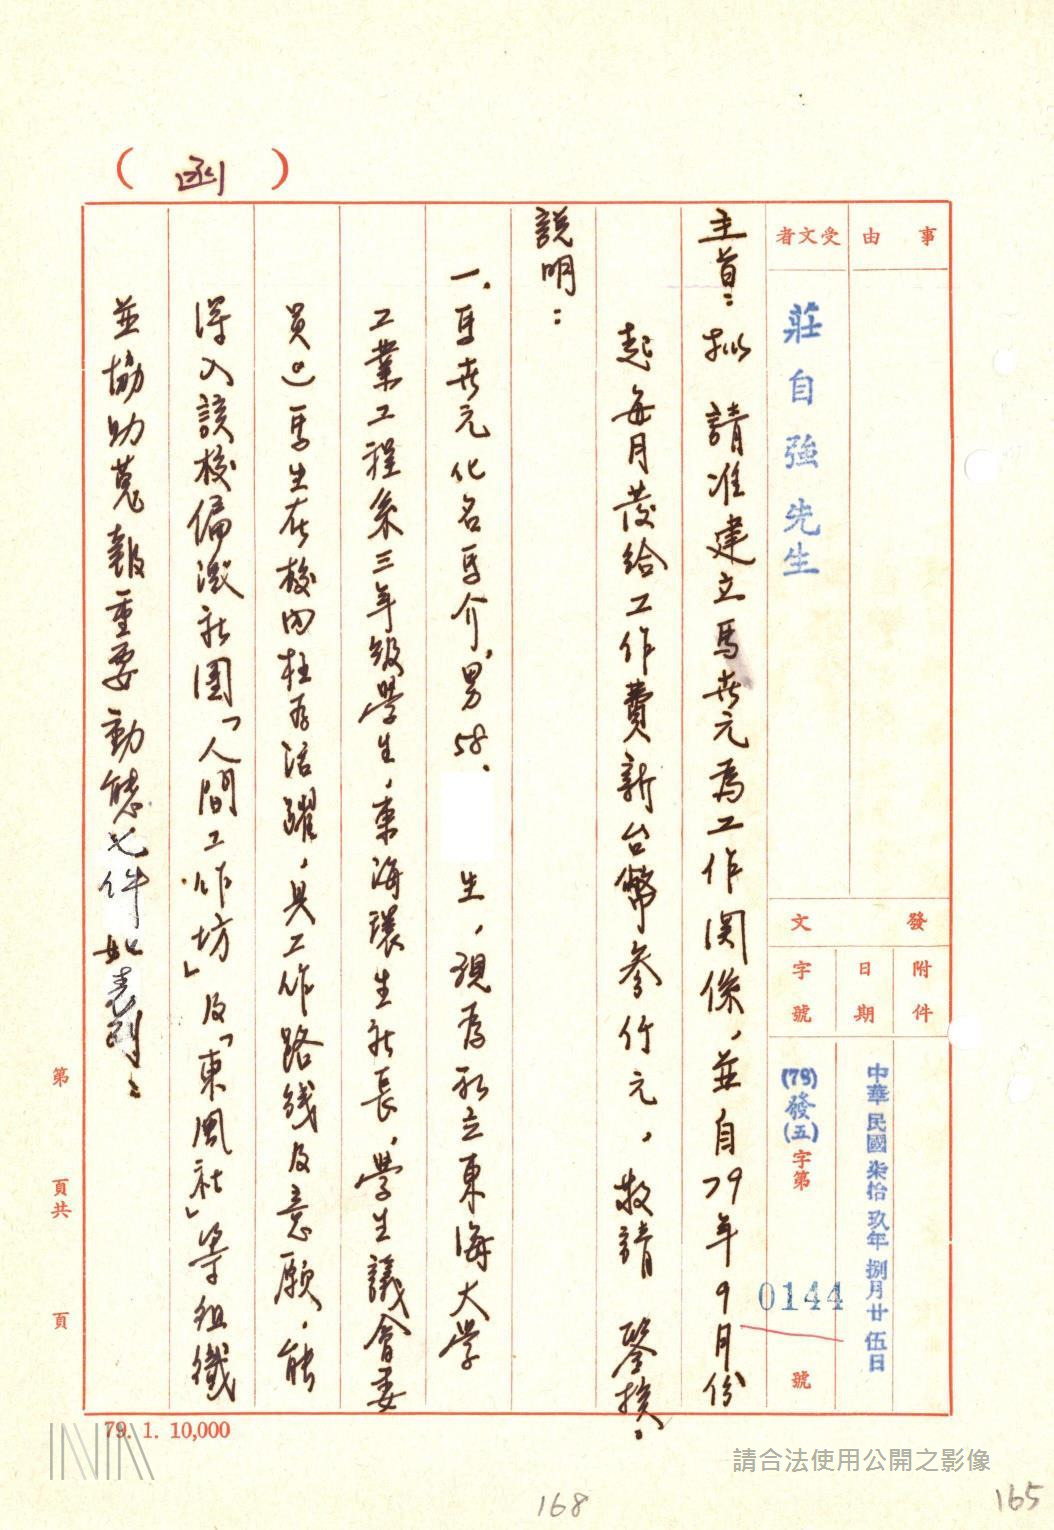 （函）
事由
受文者
莊自強先生
發文
附件
日期
中華民國柒拾玖年捌月廿伍日
字號
(79)發(五)字第0144號
主旨：擬請准建立馬卋元為工作関係，並自79年9月份
起每月發給工作費新台幣參仟元，敬請鑒核。
說明：
一、馬卋元化名馬介，男，58.
生，現為私立東海大学
工業工程系三年級學生，東海環生社長，學生議會委
員。）馬生在校內極為活躍，具工作路綫及意願，能
深入該校偏激社團「人間工作坊」及「東風社」等組織
並協助蒐報重要動態七件如表列：
第
頁共
頁
79. 1. 10,000
請合法使用公開之影像
168
165